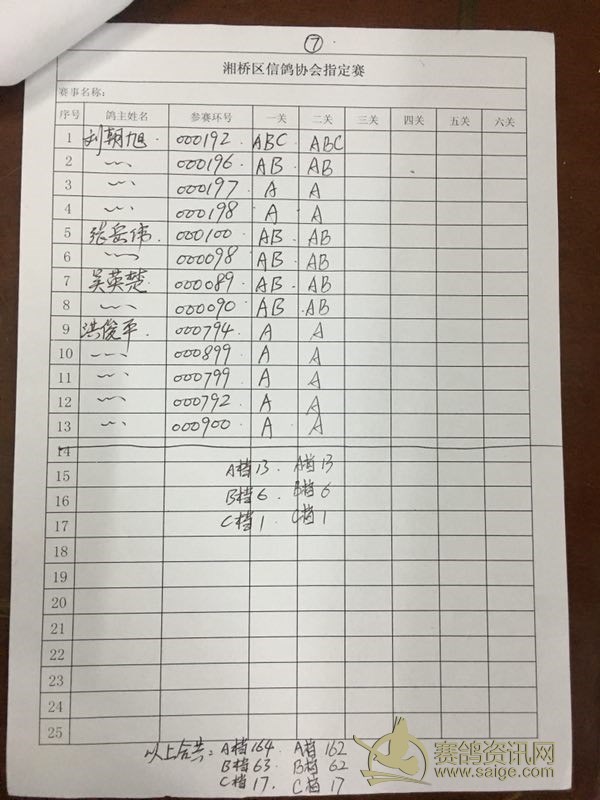 ⑦
湘桥区信鸽协会指定赛
赛事名称:
序号 鸽主姓名 参赛环号 一关 二关 三关 四关 五关 六关
1 刘朝旭. 000192. ABC. ABC
2 〃 000196. AB. AB
3 〃 000197. A A
4 〃 000198. A A
5 张岳伟. 000100. AB. AB
6 〃 000098. AB. AB
7 吴英楚. 000089. AB. AB
8 〃 000090. AB. AB
9 洪俊平. 000794. A A
10 〃 000899. A A
11 〃 000799. A A
12 〃 000792. A A
13 〃 000900. A A
14
15 A档13. A档13
16 B档6. B档6
17 C档1 C档1
18
19
20
21
22
23
24
25
以上合共: A档164. A档162
B档63. B档62
C档17. C档17
赛鸽资讯网
www.saige.com